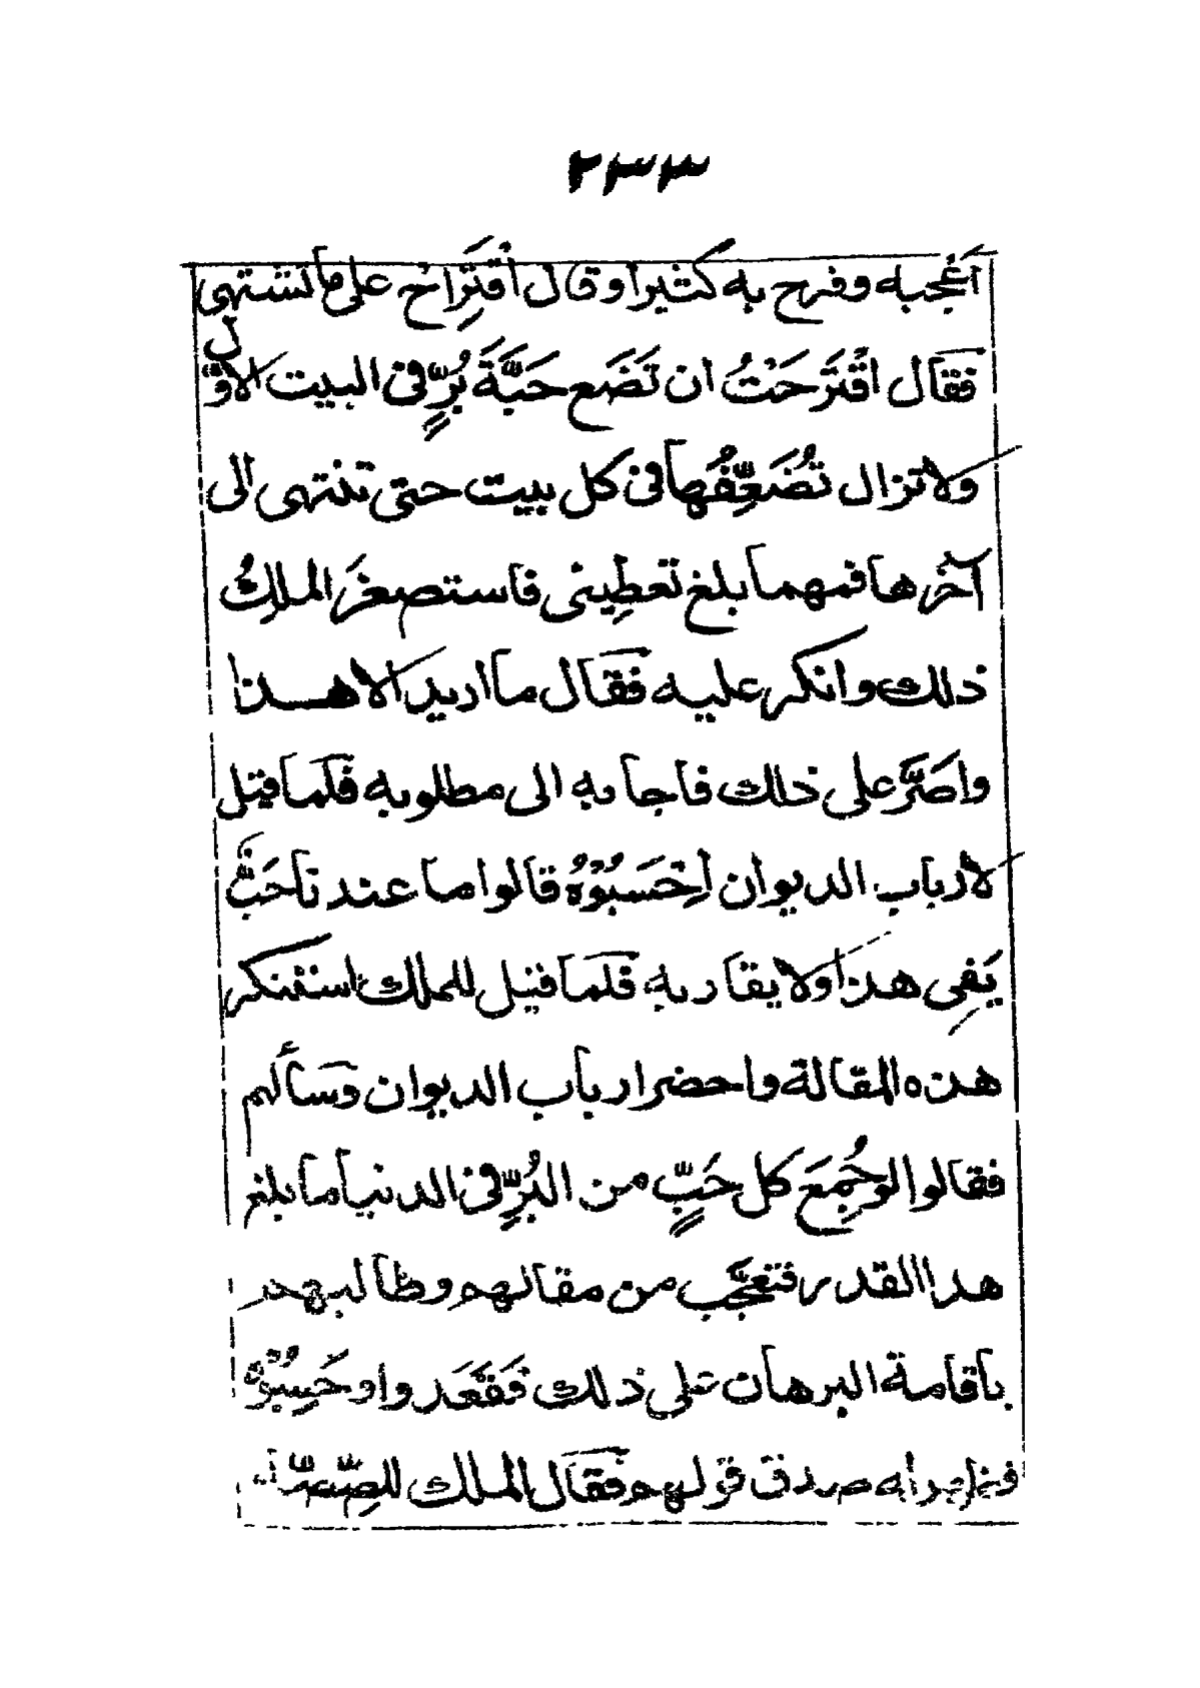 ٢٣٣
أعجبه وفرح به كثيرا وقال اقتراح على ما تشتهى
فقال اقْتَرَحْتُ ان تَضَع حَبَّةَ بُرٍّ فى البيت الاوّل
ولا تزال تُضَعِّفُها فى كل بيت حتى تنتهى الى
آخرها فمهما بلغ تعطِينى فاستصغرَ الملكُ
ذلك وانكر عليه فقال ما اريد الا هذا
واصَرَّ على ذلك فاجابه الى مطلوبه فلما قيل
لأرباب الديوان اِحْسَبُوْهُ قالوا ما عندنا حَبٌّ
يَفى هذا ولا يقاربه فلما قيل للملك استنكر
هذه المقالة واحضر ارباب الديوان وسألهم
فقالوا لو جُمِعَ كل حَبٍّ من البُرِّ فى الدنيا ما بلغ
هذا القدر فتعجَّب من مقالهم وطالبهم
باقامة البرهان على ذلك فقَعَدوا وحَسِبُوْهُ
فظهر له صدق قولهم فقال الملك للصِصَّه